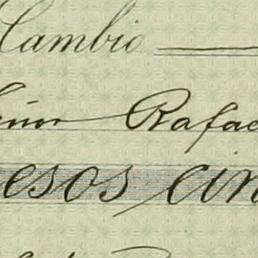 Cambio
Rafae
esos cin